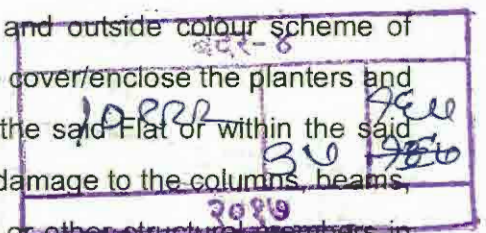 and outside colour scheme of
बदर-४
cover/enclose the planters and
the said Flat or within the said
damage to the columns, beams,
२०१७
or other structural members in